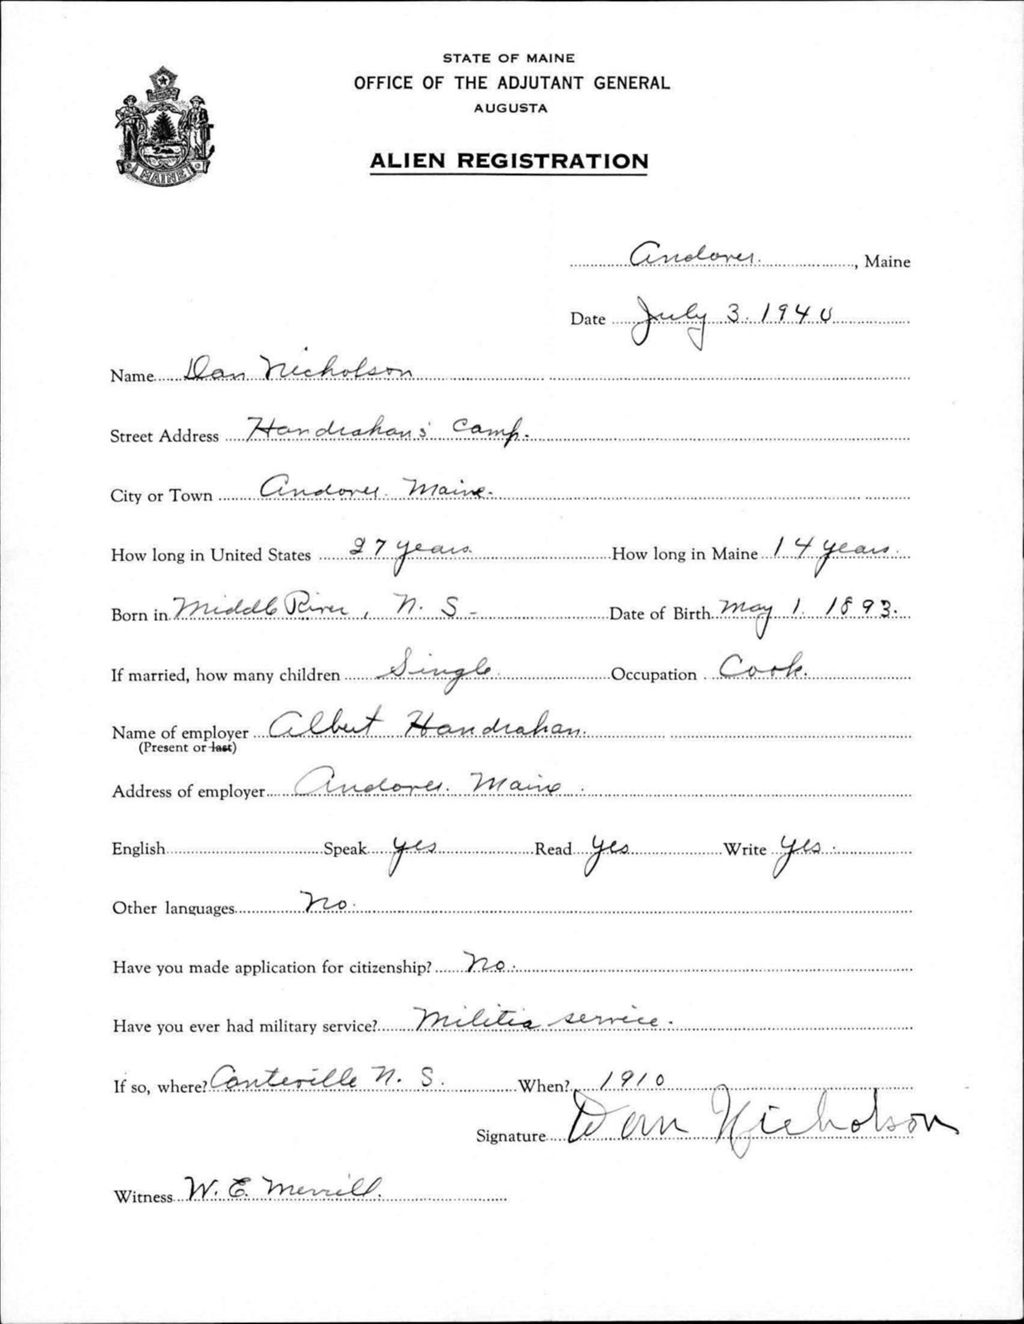 STATE OF MAINE
OFFICE OF THE ADJUTANT GENERAL
AUGUSTA
ALIEN REGISTRATION
MAINE
Andover. , Maine
Date July 3. 1940
Name Dan Nicholson
Street Address Handrahan's Camp.
City or Town Andover Maine.
How long in United States 27 years How long in Maine 14 years.
Born in Middle River, N. S. Date of Birth May 1. 1893.
If married, how many children Single. Occupation Cook.
Name of employer Albert Handrahan.
(Present or last)
Address of employer Andover. Maine.
English Speak yes Read yes Write yes.
Other languages No.
Have you made application for citizenship? No.
Have you ever had military service? Militia service.
If so, where? N. S. When? 1910
Signature Dan Nicholson
Witness W. E. Merrill.